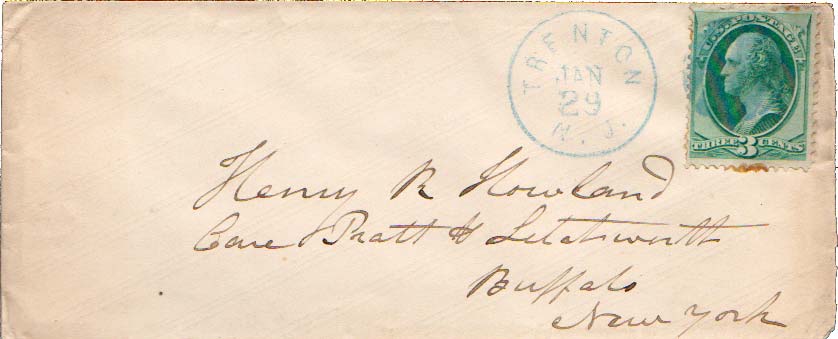 TRENTON
JAN
29
N. J.
U.S. POSTAGE
THREE 3 CENTS
Henry R Howland
Care Pratt & Letchworth
Buffalo
New York